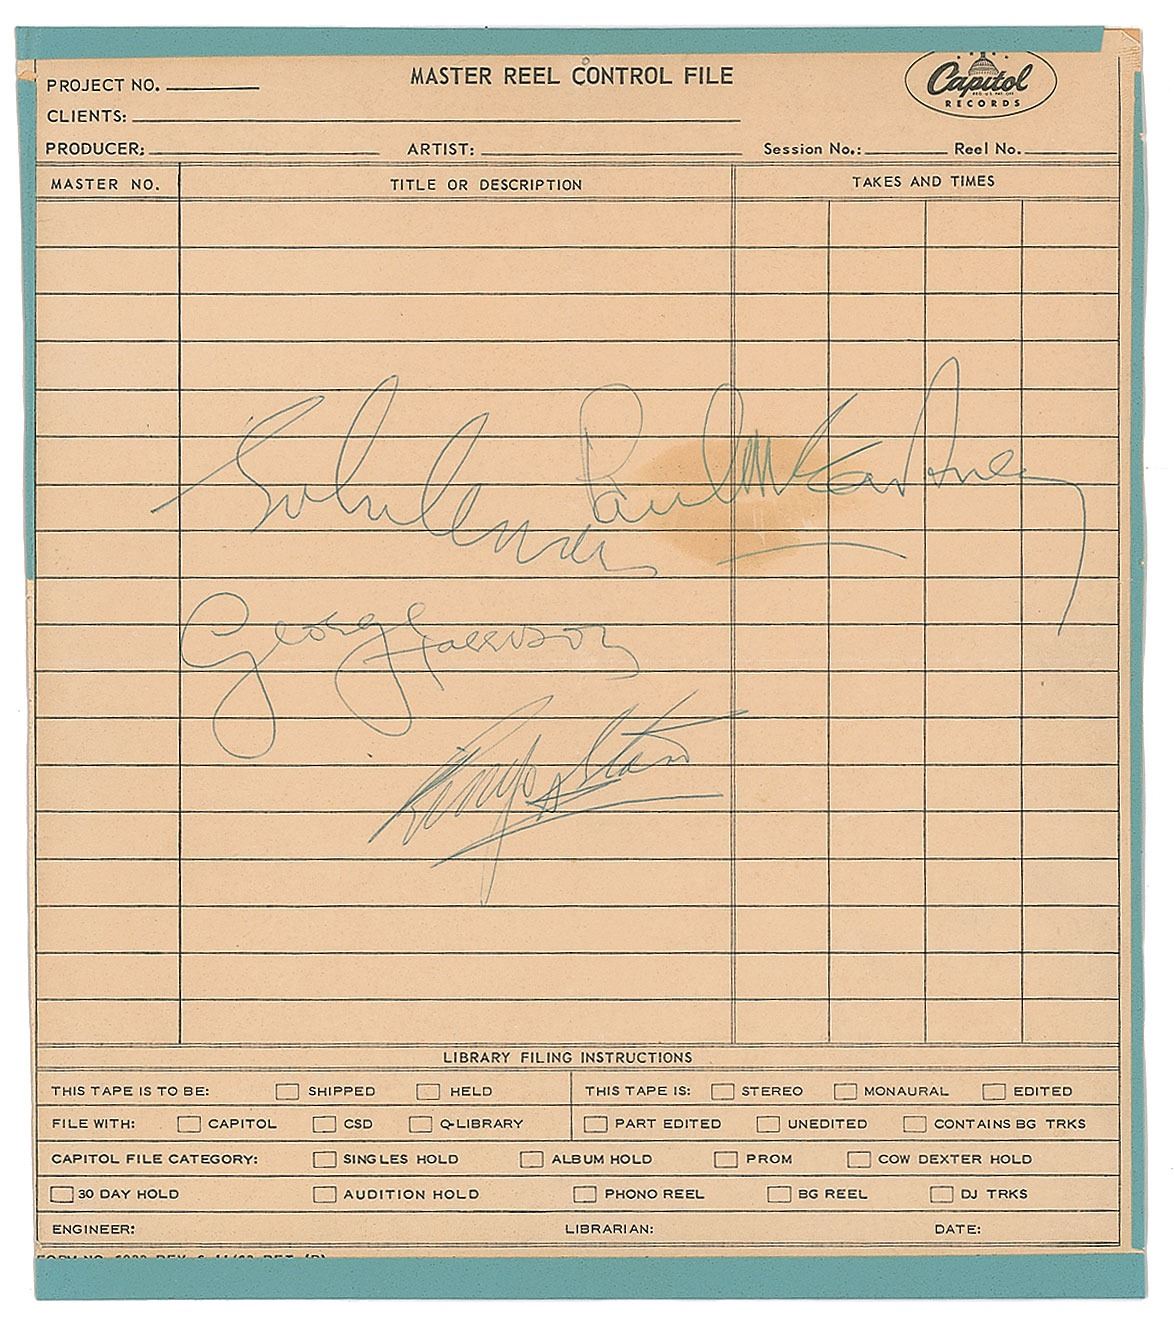 MASTER REEL CONTROL FILE
Capitol
RECORDS
PROJECT NO.
CLIENTS:
PRODUCER: ARTIST: Session No.: Reel No.
MASTER NO. TITLE OR DESCRIPTION TAKES AND TIMES
John Lennon Paul McCartney
George Harrison
Ringo Starr
LIBRARY FILING INSTRUCTIONS
THIS TAPE IS TO BE: SHIPPED HELD THIS TAPE IS: STEREO MONAURAL EDITED
FILE WITH: CAPITOL CSD Q-LIBRARY PART EDITED UNEDITED CONTAINS BG TRKS
CAPITOL FILE CATEGORY: SINGLES HOLD ALBUM HOLD PROM COW DEXTER HOLD
30 DAY HOLD AUDITION HOLD PHONO REEL BG REEL DJ TRKS
ENGINEER: LIBRARIAN: DATE: